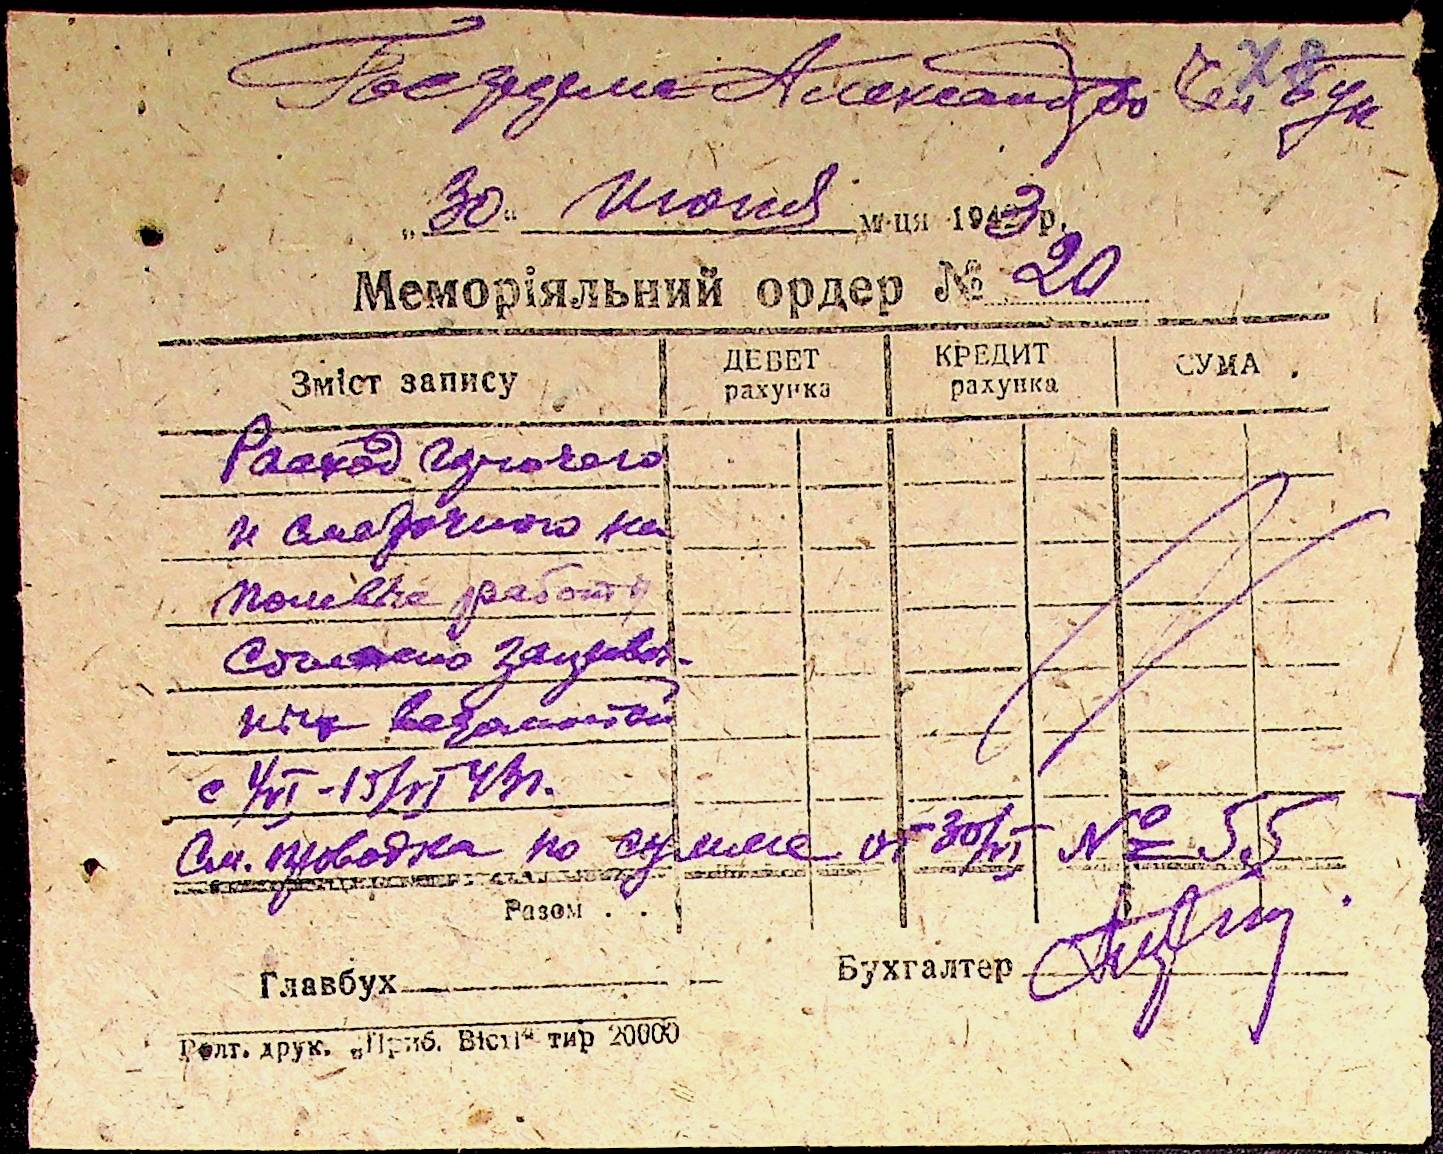 Госдума Александро
„30“ июня м-ця 1943 р.
Меморіяльний ордер № 20
Зміст запису ДЕБЕТ рахунка КРЕДИТ рахунка СУМА
Расход горючего
и смазочного на
полевые работы
Согласно
ведомостей
с 1/VI-15/VI 43г.
См. проводка по сумме от 30/VI № 55
Разом . .
Главбух Бухгалтер
Полт. друк. „Приб. Вісті“ тир 20000